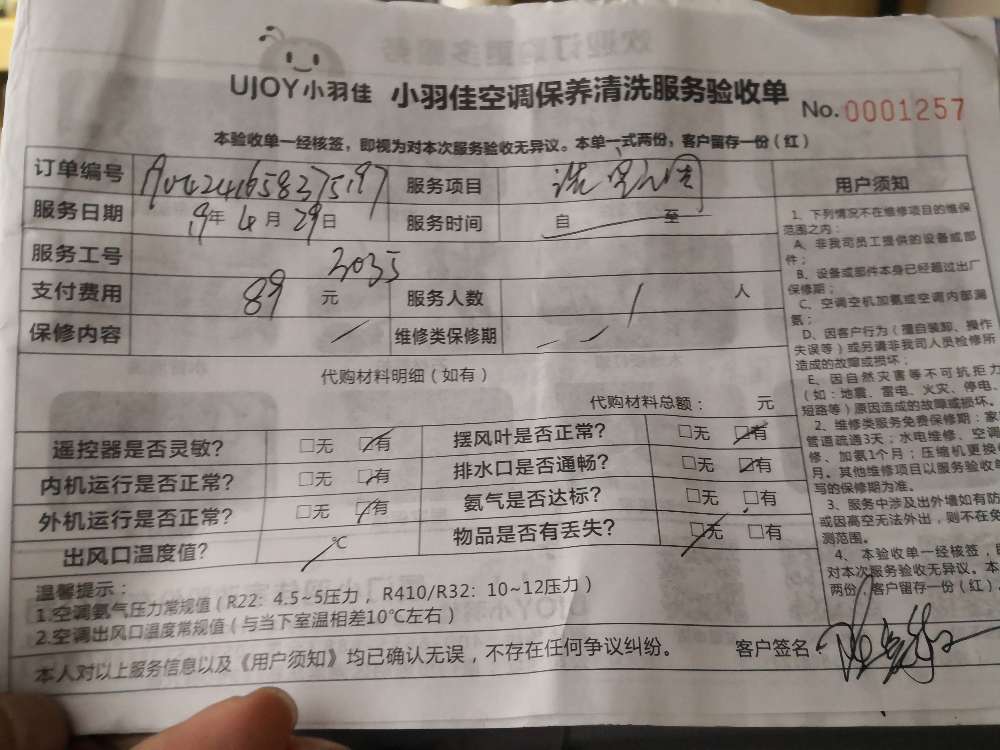 UJOY小羽佳 小羽佳空调保养清洗服务验收单 No. 0001257
本验收单一经核签，即视为对本次服务验收无异议。本单一式两份，客户留存一份（红）
订单编号 服务项目
服务日期 19年 4月 29日 服务时间 自 至
服务工号 3035
支付费用 89 元 服务人数 1 人
保修内容 维修类保修期
代购材料明细（如有）
代购材料总额： 元
遥控器是否灵敏？ □无 □有 摆风叶是否正常？ □无 □有
内机运行是否正常？ □无 □有 排水口是否通畅？ □无 □有
外机运行是否正常？ □无 □有 氨气是否达标？ □无 □有
出风口温度值？ ℃ 物品是否有丢失？ □无 □有
温馨提示：
1.空调氨气压力常规值（R22：4.5~5压力，R410/R32：10~12压力）
2.空调出风口温度常规值（与当下室温相差10℃左右）
本人对以上服务信息以及《用户须知》均已确认无误，不存在任何争议纠纷。 客户签名：
用户须知
1、下列情况不在维修项目的维保
范围之内：
A、非我司员工提供的设备或部
件；
B、设备或部件本身已经超过出厂
保修期；
C、空调空机加氨或空调内部漏
氨；
D、因客户行为（擅自装卸、操作
失误等）或另请非我司人员检修所
造成的故障或损坏；
E、因自然灾害等不可抗拒力
（如：地震、雷电、火灾、停电、
短路等）原因造成的故障或损坏。
2、维修类服务免费保修期：家
管道疏通3天；水电维修、空调
修、加氨1个月；压缩机更换
月。其他维修项目以服务验收单
写的保修期为准。
3、服务中涉及出外墙如有防
或因高空无法外出，则不在免
测范围。
4、本验收单一经核签，
对本次服务验收无异议。本
两份，客户留存一份（红）